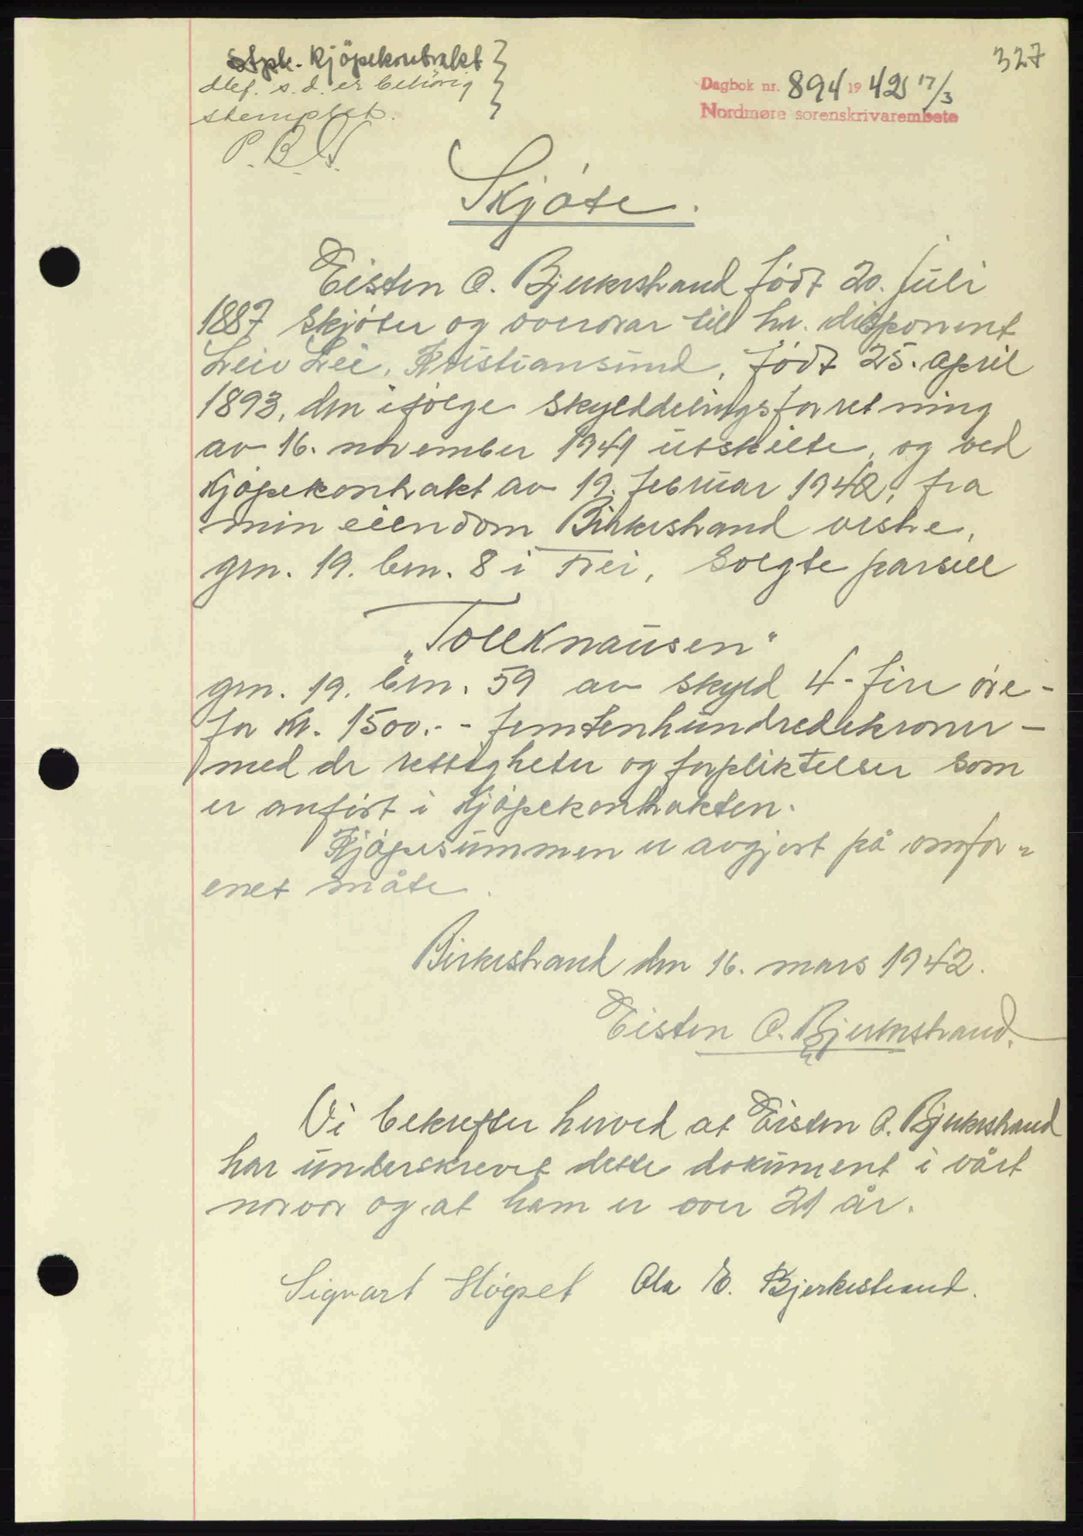 327
kjöpekontrakt
dlef. s. d. er behörig
stemplet.
P. B.
Dagbok nr. 894 1942 17/3
Nordmøre sorenskriverembete
Skjöte.
Eisten O. Bjerkestrand født 20. juli
1887 skjöter og overdrar til hr. disponent
Leiv Lei, Kristiansund, født 25. april
1893, den ifölge skylddelingsforretning
av 16. november 1941 utskilte, og ved
kjöpekontrakt av 19. februar 1942, fra
min eiendom Birkestrand vestre,
grn. 19. brn. 8 i Frei, solgte parsell
„Tollknausen"
grn. 19. brn. 59 av skyld 4 - fire öre -
for kr. 1500.- - femtenhundredekroner -
med de rettigheter og forpliktelser som
er anfört i kjöpekontrakten.
Kjöpesummen er avgjort på omfor-
enet måte.
Birkestrand den 16. mars 1942.
Eisten O. Bjerkestrand.
Vi bekrefter herved at Eisten O. Bjerkestrand
har underskrevet dette dokument i vårt
nærvær og at ham er over 21 år.
Sigvart Högset Ola E. Bjerkestrand.